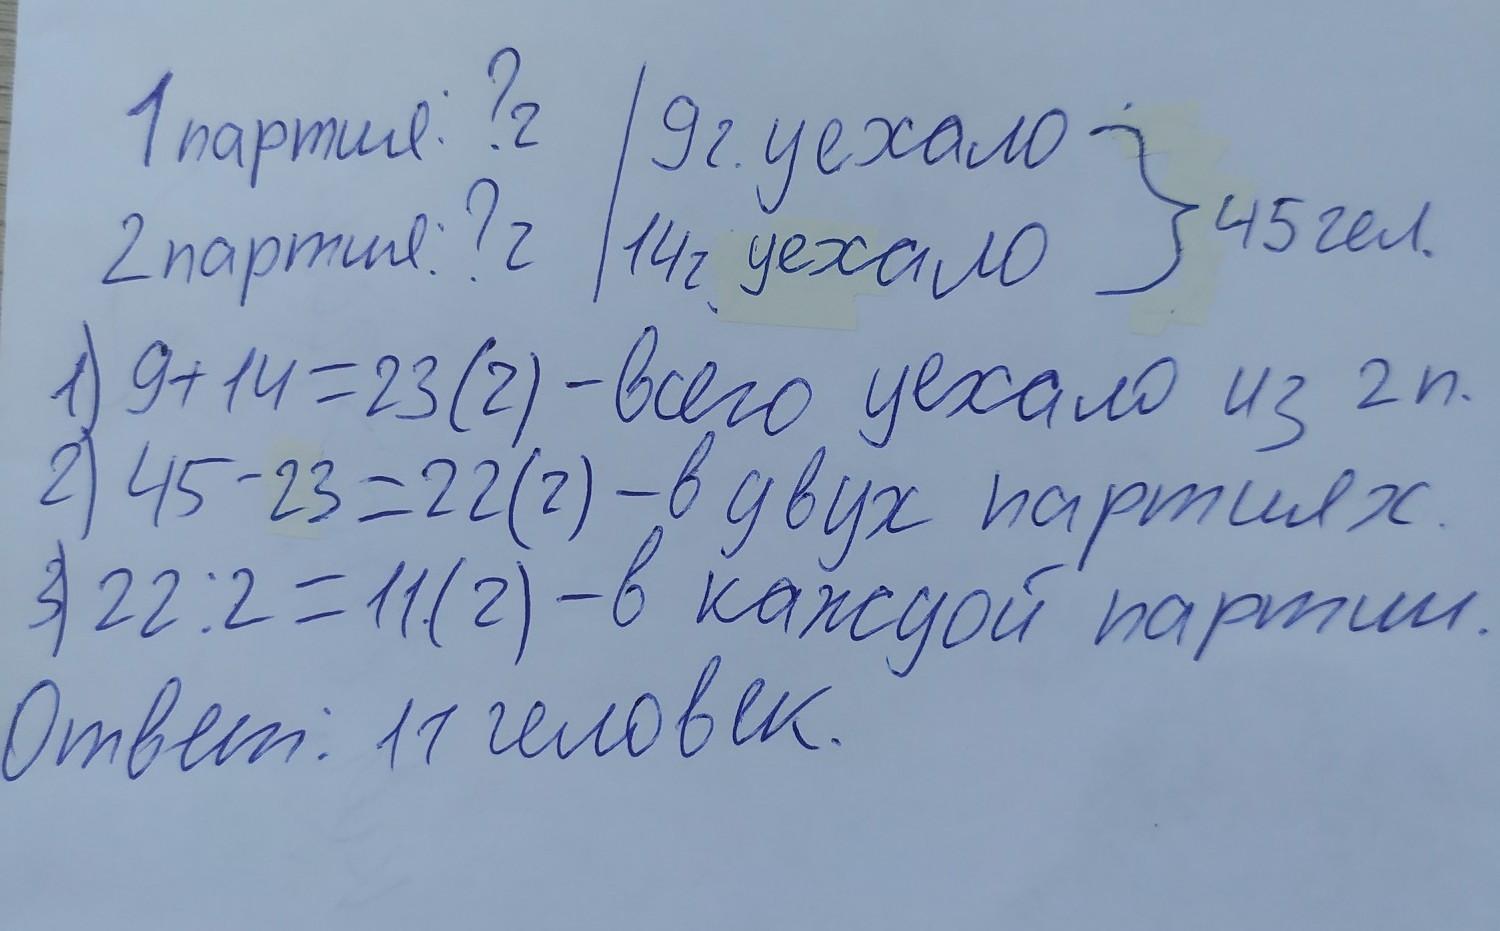 1 партия: ? ч | 9 ч. уехало
2 партия: ? ч | 14 ч. уехало } 45 чел.
1) 9+14=23(ч) – всего уехало из 2 п.
2) 45-23=22(ч) – в двух партиях.
3) 22:2=11.(ч) – в каждой партии.
Ответ: 11 человек.